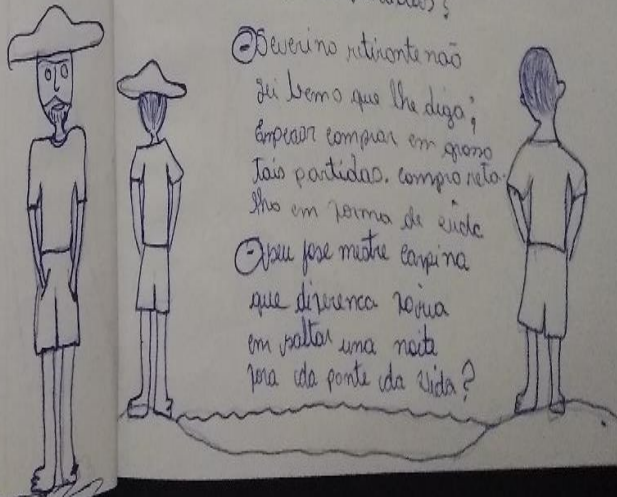 Severino retirante não
sei bem o que lhe diga;
Empeaor comprar em grosso
tais partidas. compro reta-
lho em forma de vida
seu jose mestre carpina
que diferenca faria
em saltar uma noite
fora da ponte da vida?